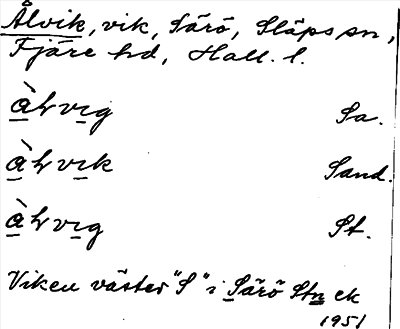 Ålvik, vik, Särö, Släps sn,
Fjäre hd, Hall. l.
àLvig Sa.
àLvik Sand.
àLvig St.
Viken väster "S" i Särö Stn ek
1951